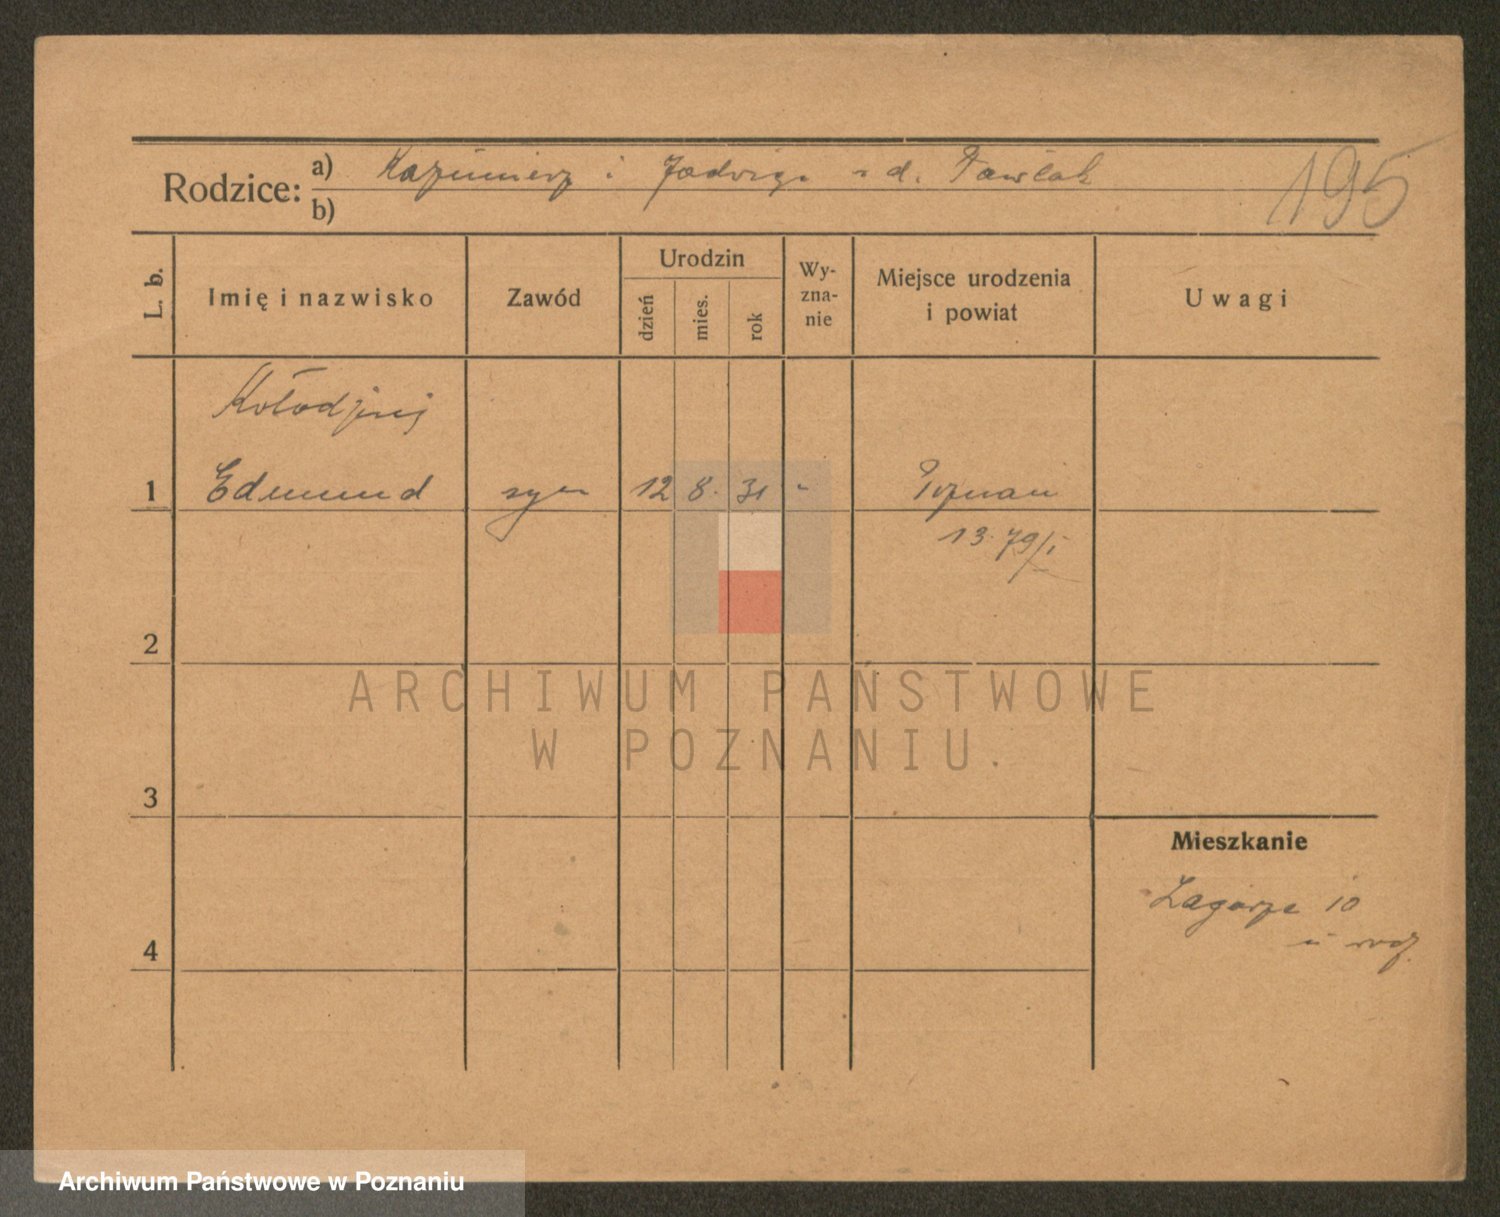 Rodzice: a) Kazimierz i Jadwiga z d. Pawlak
b)
195
L. b.
Imię i nazwisko
Zawód
Urodzin
dzień
mies.
rok
Wy-
zna-
nie
Miejsce urodzenia
i powiat
Uwagi
Kołodziej
1 Edmund syn 12 8. 31 " Poznań
13.79/I
2
ARCHIWUM PAŃSTWOWE
W POZNANIU.
3
Mieszkanie
Zagórze 10
u rodz.
4
Archiwum Państwowe w Poznaniu